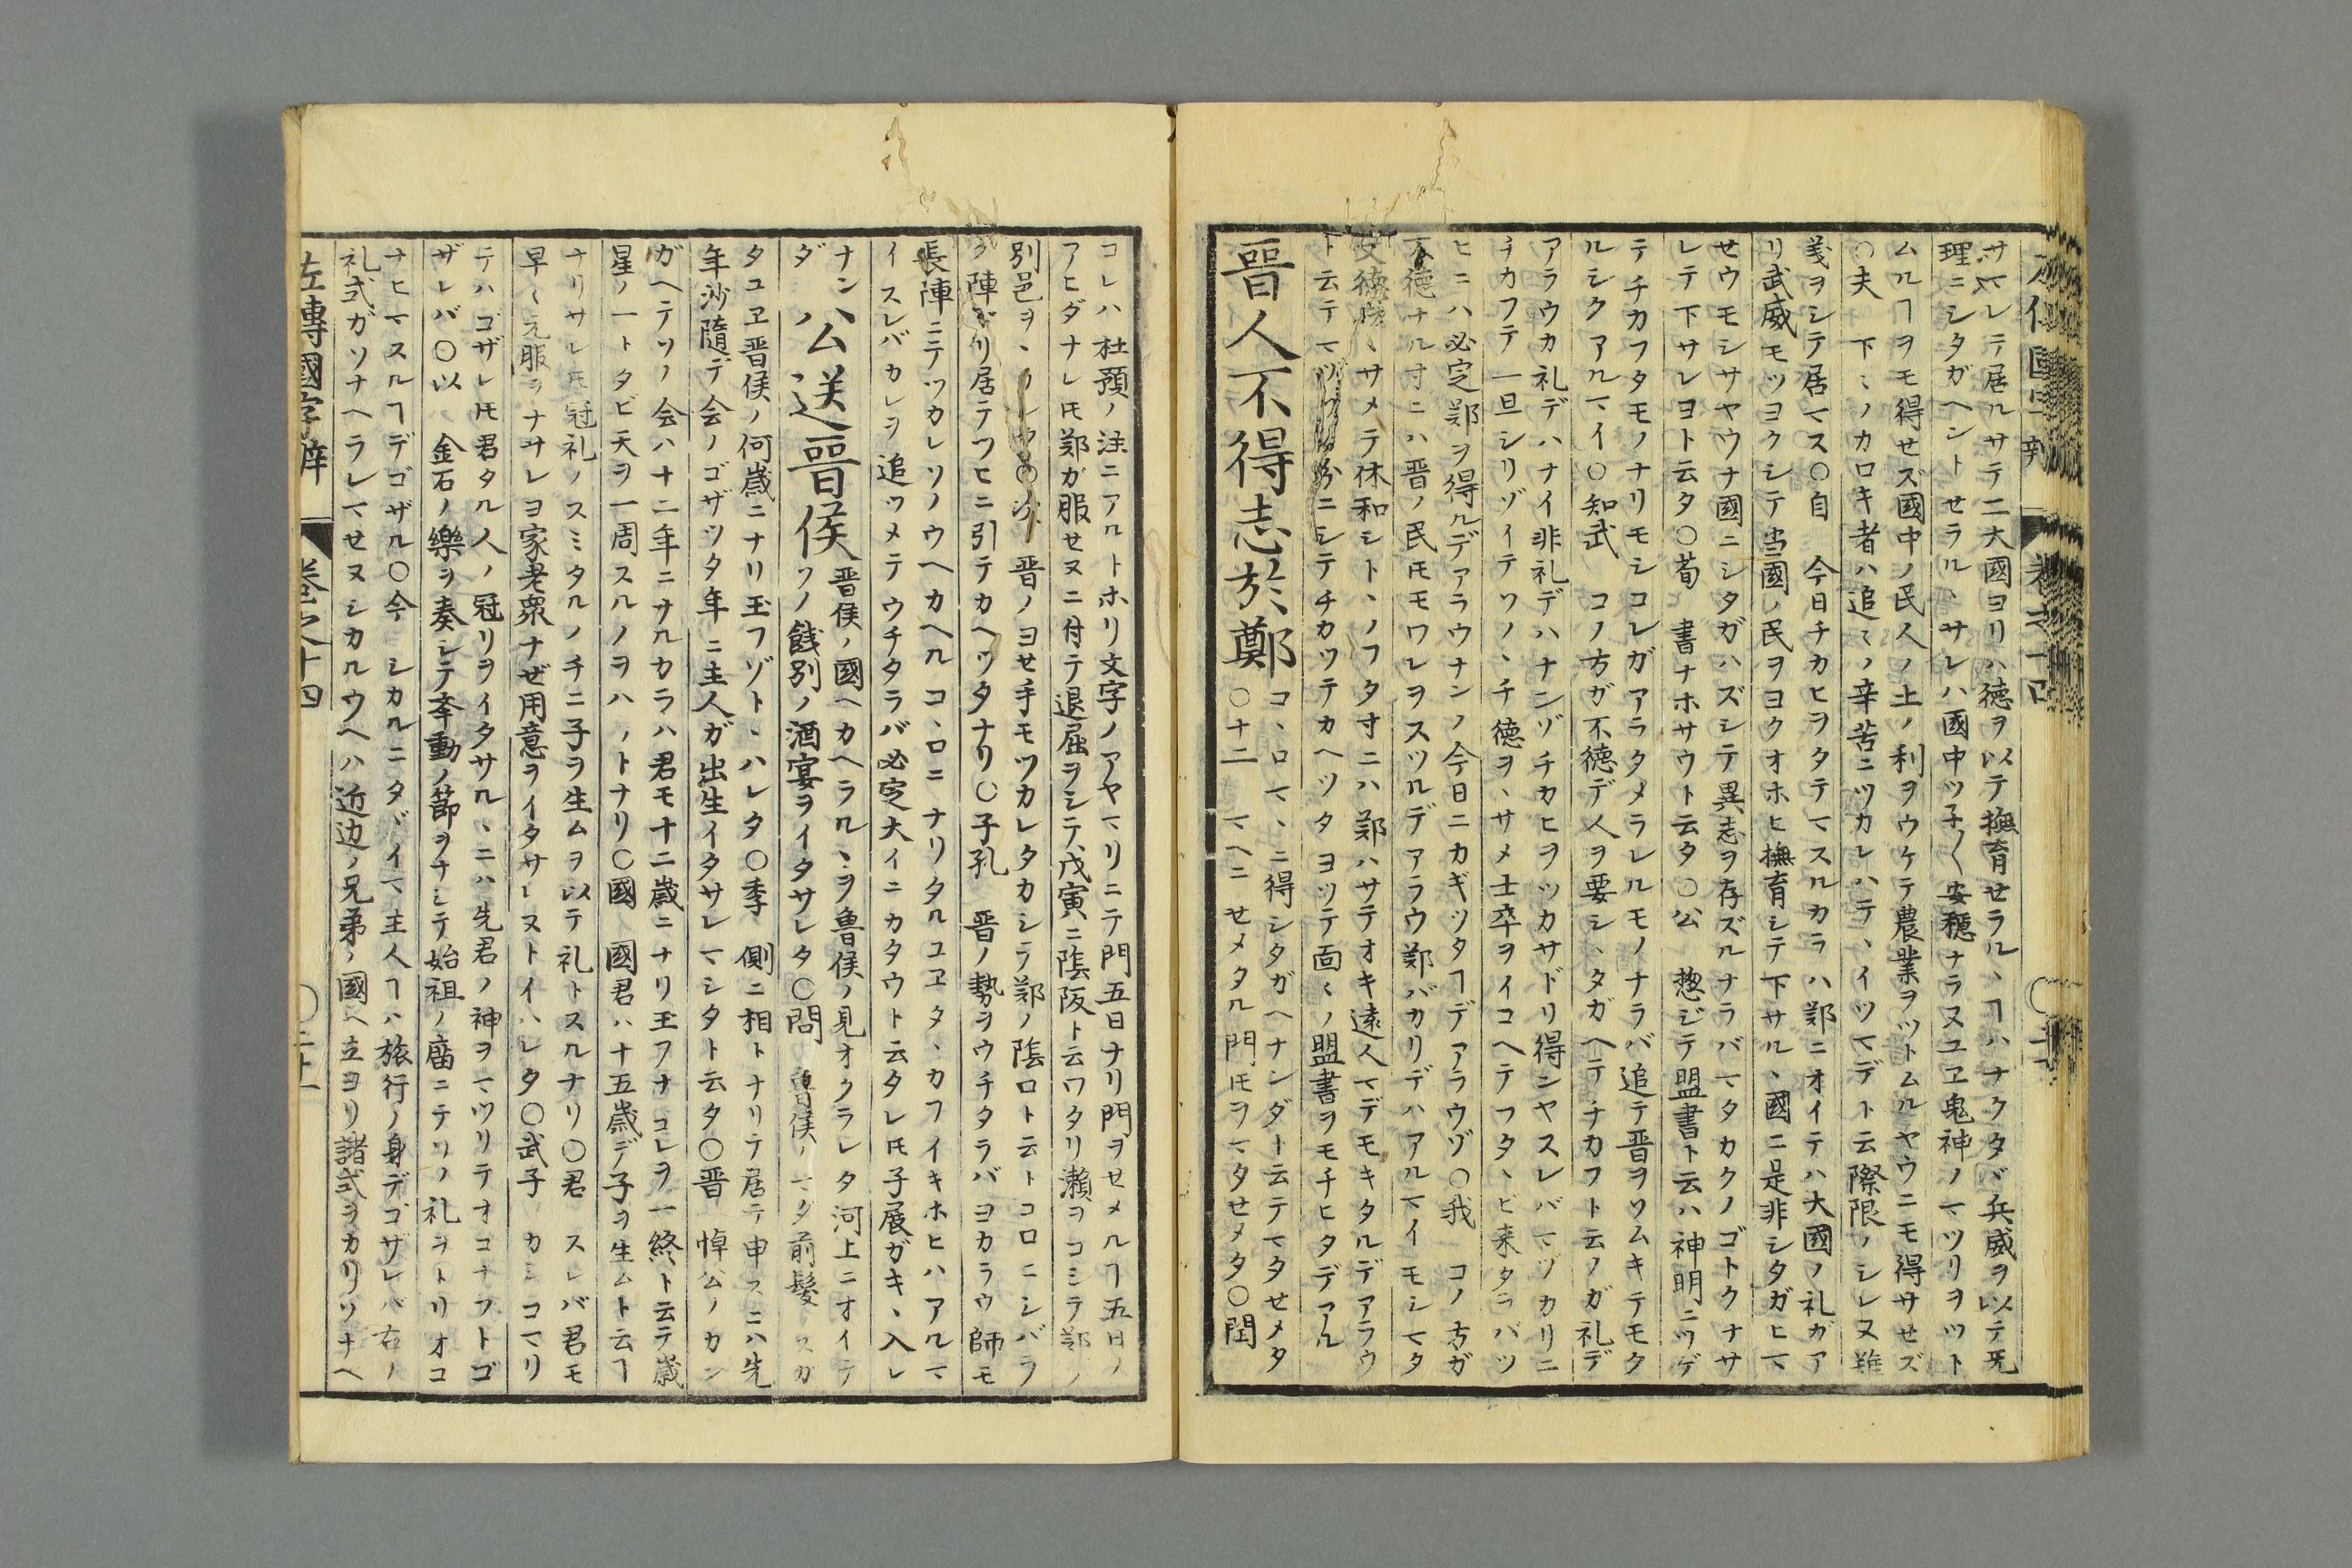 サマレテ居ルサテ二大國ヨリハ徳ヲ以テ撫育セラルヽヿハナクタバ兵威ヲ以テ死
理ニシタガヘントセラルヽサレハ國中ツ子〱安穏ナラヌユヱ鬼神ノマツリヲツト
ムルヿヲモ得セズ國中ノ民人ノ土ノ利ヲウケテ農業ヲツトムルヤウニモ得サセズ
○夫 下〻ノカロキ者ハ追〻ノ辛苦ニツカレハテヽイツマデト云際限ノシレヌ難
義ヲシテ居マス○自 今日チカヒヲタテマスルカラハ鄭ニオイテハ大國ノ礼ガア
リ武威モツヨクシテ当國ノ民ヲヨクオホヒ撫育シテ下サルヽ國ニ是非シタガヒマ
せウモシサヤウナ國ニシタガハズシテ異志ヲ存ズルナラバマタカクノゴトクナサ
レテ下サレヨト云タ○荀 書ナホサウト云タ○公 惣ジテ盟書ト云ハ神明ニツゲ
テチカフタモノナリモシコレガアラタメラレルモノナラバ追テ晋ヲソムキテモク
ルシクアルマイ○知武 コノ方ガ不徳デ人ヲ要シヽタガヘテチカフト云ノガ礼デ
アラウカ礼デハナイ非礼デハナンゾチカヒヲツカサドリ得ンヤスレバマヅカリニ
チカフテ一旦シリゾイテソノヽチ徳ヲヽサメ士卒ヲイコヘテフタヽビ来タラバツ
ヒニハ必定鄭ヲ得ルデアラウナンノ今日ニカギツタヿデアラウゾ○我 コノ方ガ
不徳ナル寸ニハ晋ノ民𪜈モワレヲスツルデアラウ鄭バカリデハアルマイモシマタ
安徳 ヽサメテ休和シトヽノフタ寸ニハ鄭ハサテオキ遠人マデモキタルデアラウ
ト云テマヅ ニシテチカツテカヘツタヨツテ面〻ノ盟書ヲモチヒタデアル
晋人不得志於鄭 コヽロマヽニ得シタガヘナンダト云テマタせメタ
○十二 マヘニせメタル門𪜈ヲマタせメタ○閏
コレハ杜預ノ注ニアルトホリ文字ノアヤマリニテ門五日ナリ門ヲセメルヿ五日ノ
アヒダナレ𪜈鄭ガ服せヌニ付テ退屈ヲシテ戊寅ニ陰阪ト云ワタリ瀬ヲコシテ鄭ノ
別邑ヲ 晋ノヨせ手モツカレタカシラ鄭ノ陰口ト云トコロニシバラ
ク陣 リ居テツヒニ引テカヘツタナリ○子孔 晋ノ勢ヲウチタラバヨカラウ師モ
長陣ニテツカレソノウヘカヘルコヽロニナリタルユヱタヽカフイキホヒハアルマ
イスレバカレヲ追ツメテウチタラバ必定大イニカタウト云タレ𪜈子展ガキヽ入レ
ナン
ダ 公送晋侯 晋侯ノ國ヘカヘラルヽヲ魯侯ノ見オクラレタ河上ニオイテ
ソノ餞別ノ酒宴ヲイタサレタ○問 魯侯ノマダ前髪 スガ
タユヱ晋侯ノ何歳ニナリ玉フゾトヽハレタ○季 側ニ相トナリテ居テ申スニハ先
年沙隨デ会ノゴザツタ年ニ主人ガ出生イタサレマシタト云タ○晋 悼公ノカン
ガヘテソノ会ハ十二年ニナルカラハ君モ十二歳ニナリ玉フナコレヲ一終ト云テ歳
星ノ一トタビ天ヲ一周スルノヲハ ノトナリ○國 國君ハ十五歳デ子ヲ生ムト云ヿ
ナリサレ𪜈冠礼ノスミタルノチニ子ヲ生ムヲ以テ礼トスルナリ○君 スレバ君モ
早〻元服ヲナサレヨ家老衆ナゼ用意ヲイタサレヌトイハレタ○武子 カシコマリ
テハゴザレ𪜈君タル人ノ冠リヲイタサルヽニハ先君ノ神ヲマツリテオコナフトゴ
ザレバ○以 金石ノ樂ヲ奏シテ挙動ノ節ヲナシテ始祖ノ廟ニテソノ礼ヲトリオコ
ナヒマスルヿデゴザル○今 シカルニタヾイマ主人ヿハ旅行ノ身デゴザレバ右ノ
礼式ガソナヘラレマせヌシカルウヘハ近辺ノ兄弟ノ國ヘ立ヨリ諸式ヲカリソナヘ
左傳國字辯 巻之十四 ○二十一